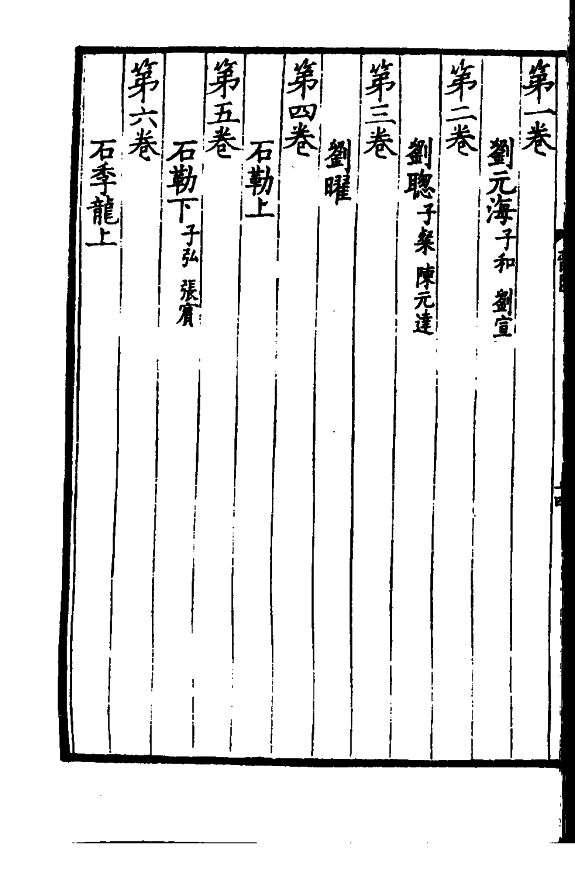 第一卷
劉元海子和 劉宣
第二卷
劉聰子粲 陳元達
第三卷
劉曜
第四卷
石勒上
第五卷
石勒下子弘 張賓
第六卷
石季龍上